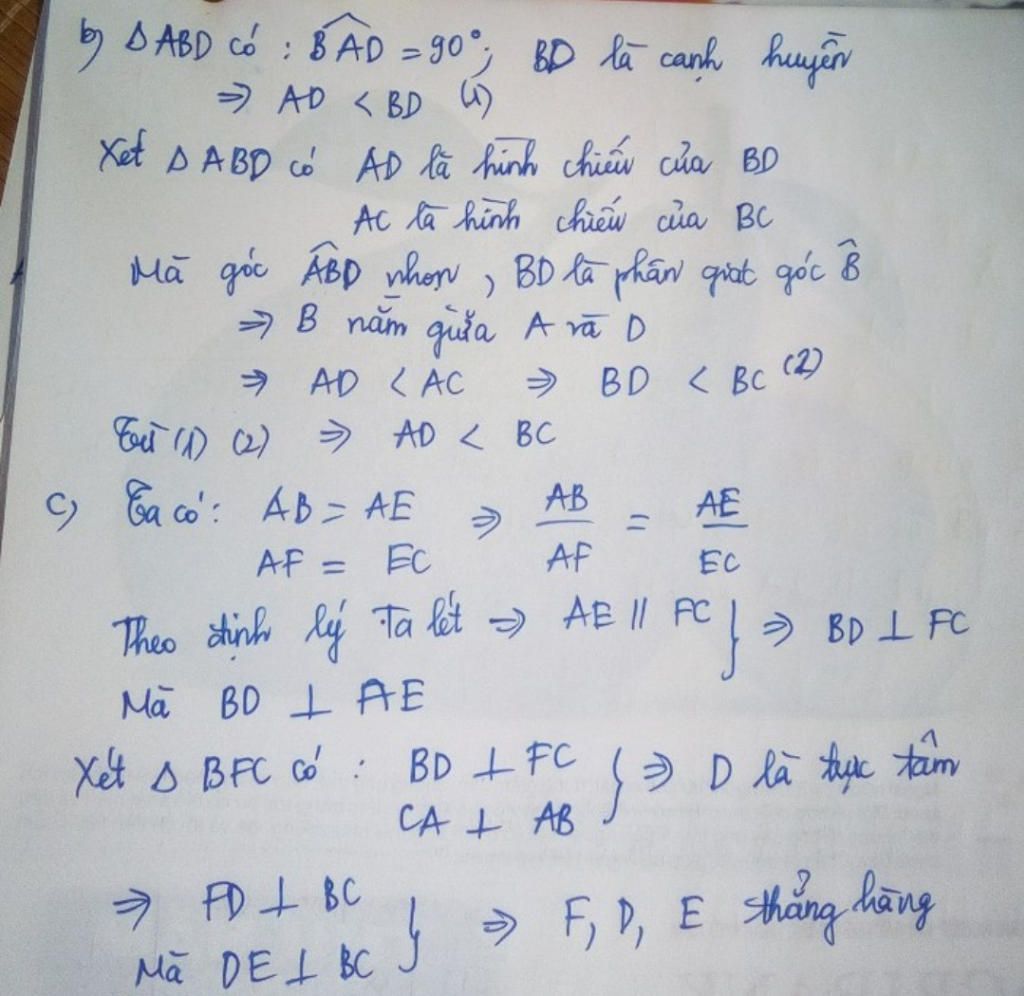 b) Δ ABD có : B̂AD = 90°; BD là cạnh huyền
⇒ AD < BD (1)
Xét Δ ABD có AD là hình chiếu của BD
AC là hình chiếu của BC
Mà góc ÂBD nhọn, BD là phân giát góc B̂
⇒ B nằm giữa A và D
⇒ AD < AC ⇒ BD < BC (2)
Từ (1) (2) ⇒ AD < BC
c) Ta có: AB = AE ⇒ AB/AF = AE/EC
AF = EC
Theo định lý Ta lét ⇒ AE // FC } ⇒ BD ⊥ FC
Mà BD ⊥ AE
Xét Δ BFC có : BD ⊥ FC } ⇒ D là trực tâm
CA ⊥ AB
⇒ FD ⊥ BC } ⇒ F, D, E thẳng hàng
Mà DE ⊥ BC